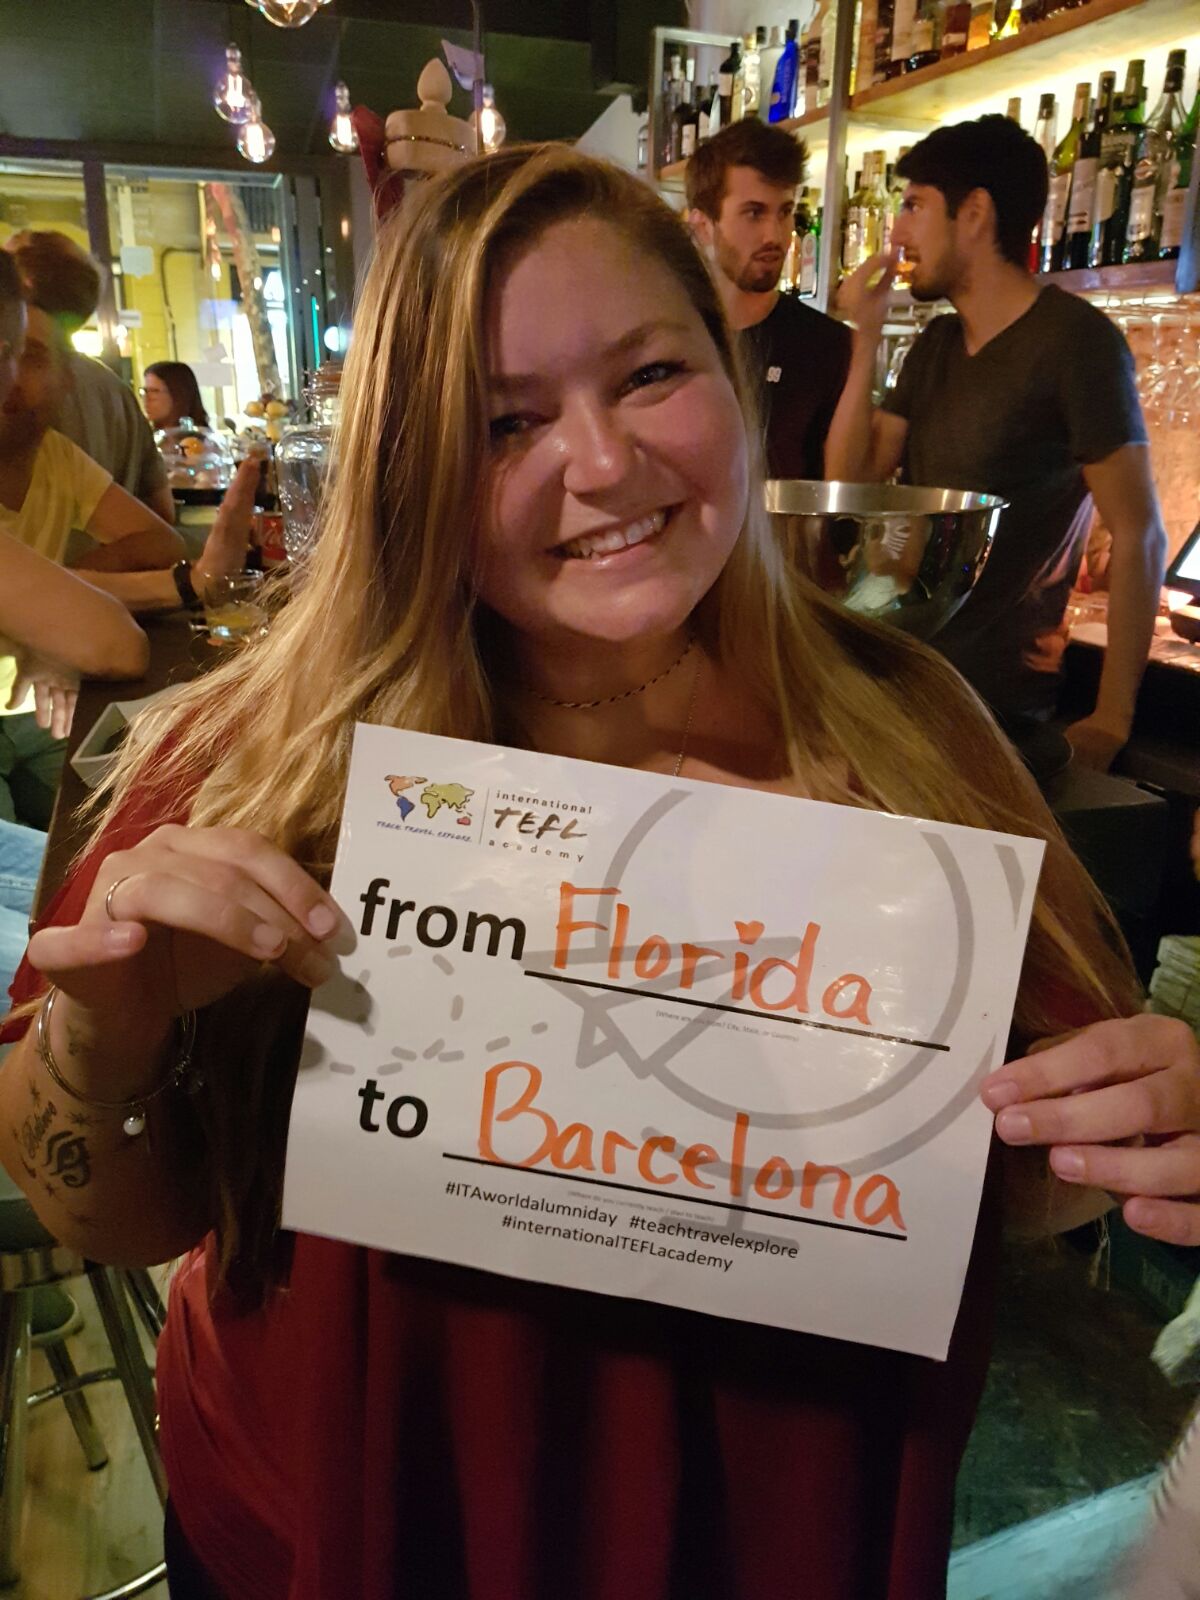 international
TEFL
academy
TEACH. TRAVEL. EXPLORE.
from Florida
(Where are you from? City, State, or Country)
to Barcelona
(Where do you currently teach / plan to teach)
#ITAworldalumniday #teachtravelexplore
#internationalTEFLacademy
Believe